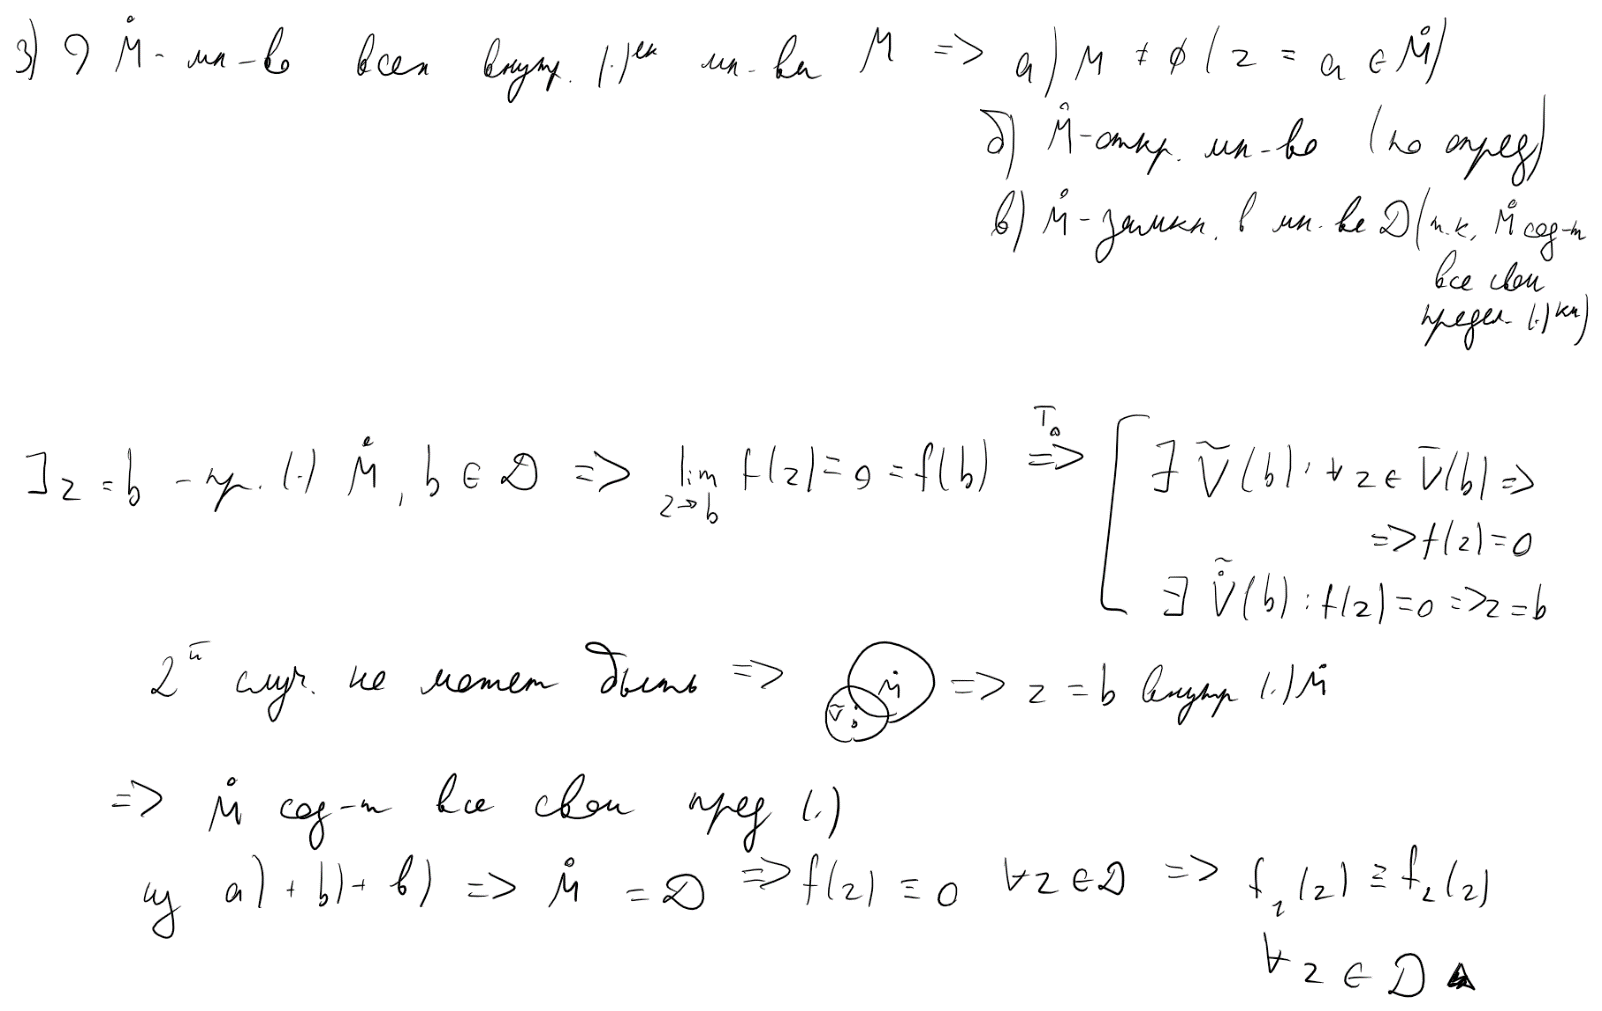 3) Э M̊ - мн-во всех внутр. (·)ек мн-ва M => а) M ≠ ∅ (z = a ∈ M̊)
б) M̊ - откр. мн-во (по опред)
в) M̊ - замкн. в мн-ве D (т.к. M̊ сод-т
все свои
предел. (·)ки)
∃ z = b - пр. (·) M̊, b ∈ D => lim_{z→b} f(z) = 0 = f(b) =>^{T_a} [ ∃ Ṽ(b): ∀ z ∈ Ṽ(b) =>
=> f(z) = 0
∃ Ṽ̊(b): f(z) = 0 => z = b
2й случ. не может быть => M̊ Ṽ b => z = b внутр (·) M̊
=> M̊ сод-т все свои пред (·)
из а) + b) + в) => M̊ = D => f(z) ≡ 0 ∀ z ∈ D => f₁(z) ≡ f₂(z)
∀ z ∈ D ▲